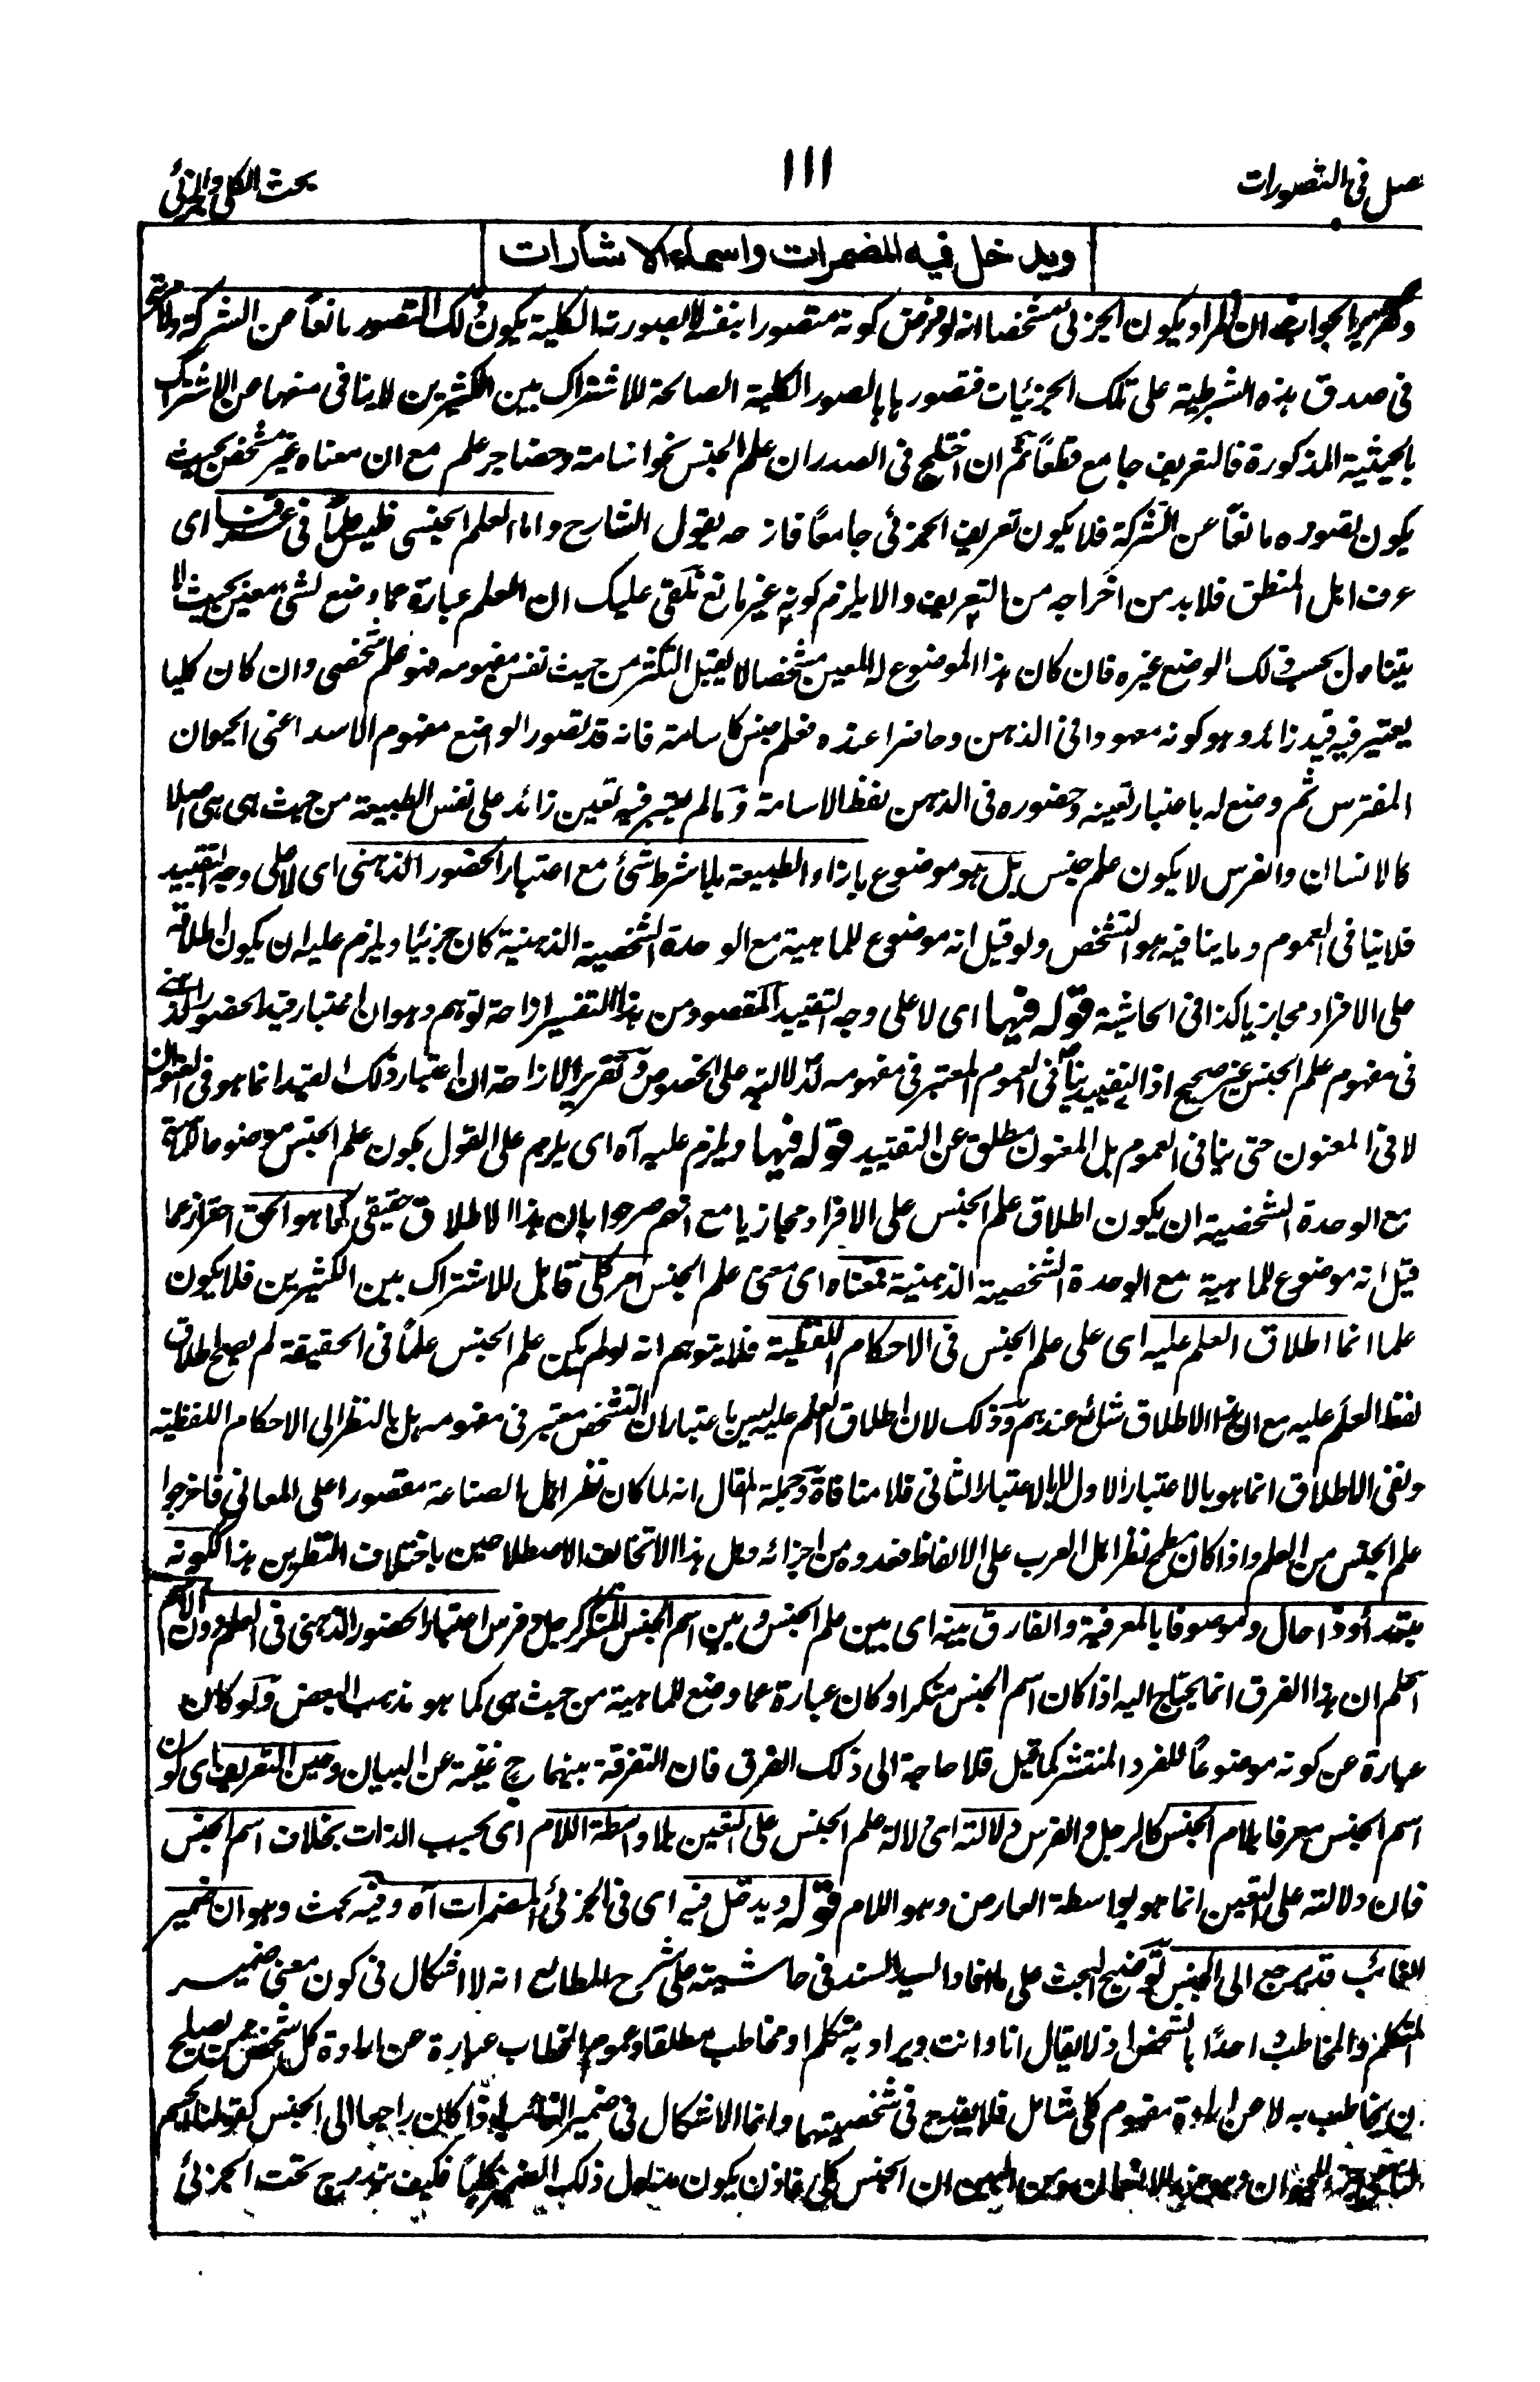 فصل فی التصورات
١١١
بحث الکلی والجزئی
ویدخل فیه المضمرات واسماء الاشارات
الجواب ان المراد بکون الجزئی مشخصا انه لو فرض کونه متصورا بنفسه لا بصورته الکلیة یکون ذلک التصور مانعاً عن الشرکة ولا
فی صدق هذه الشرطیة علی تلک الجزئیات فتصورها بالصور الکلیة الصالحة للاشتراک بین الکثیرین لا ینافی منعها عن الاشتراک
بالحیثیة المذکورة فالتعریف جامع قطعاً ثم ان اختلج فی الصدر ان علم الجنس نحو اسامة وحضاجر علم مع ان معناه غیر مشخص بحیث
یکون تصوره مانعاً عن الشرکة فلا یکون تعریف الجزئی جامعاً فازحه بقول الشارح واما العلم الجنسی فلیس علماً فی عرفنا ای
عرف اهل المنطق فلا بد من اخراجه من التعریف والا یلزم کونه غیر مانع نلقی علیک ان العلم عبارة عما وضع لشیء معین بحیث لا
یتناول بحسب ذلک الوضع غیره فان کان هذا الموضوع له المعین مشخصا لا یقبل التکثر من حیث نفس مفهومه فهو علم شخصی وان کان کلیا
یعتبر فیه قید زائد وهو کونه معهودا فی الذهن وحاضرا عنده فعلم جنس کاسامة فانه قد تصور الواضع مفهوم الاسد اعنی الحیوان
المفترس ثم وضع له باعتبار تعینه وحضوره فی الذهن لفظ الاسامة وما لم یعتبر فیه تعین زائد علی نفس الطبیعة من حیث هی هی اصلا
کالانسان والفرس لا یکون علم جنس بل هو موضوع بازاء الطبیعة بلا شرط شیٔ مع اعتبار الحضور الذهنی ای لا علی وجه التقیید
فلا ینافی العموم وما ینافیه هو التشخص ولو قیل انه موضوع للماهیة مع الوحدة الشخصیة الذهنیة کان جزئیا ویلزم علیه ان یکون اطلاقه
علی الافراد مجازیا کذا فی الحاشیة قوله فیها ای لا علی وجه التقیید المقصود من هذا التفسیر ازاحة توهم وهو ان اعتبار قید الحضور الذهنی
فی مفهوم علم الجنس غیر صحیح اذ التقیید ینافی العموم المعتبر فی مفهومه لدلالته علی الخصوص وتقریر الازاحة ان اعتبار ذلک القید انما هو فی العنوان
لا فی المعنون حتی ینافی العموم بل المعنون مطلق عن التقیید قوله فیها ویلزم علیه آه ای یلزم علی القول بکون علم الجنس موضوعا للماهیة
مع الوحدة الشخصیة ان یکون اطلاق علم الجنس علی الافراد مجازیا مع انهم صرحوا بان هذا الاطلاق حقیقی کما هو الحق احتراز عما
قیل انه موضوع للماهیة مع الوحدة الشخصیة الذهنیة فمعناه ای معنی علم الجنس امر کلی قابل للاشتراک بین الکثیرین فلا یکون
علما انما اطلاق العلم علیه ای علی علم الجنس فی الاحکام اللفظیة فلا یتوهم انه لو لم یکن علم الجنس علماً فی الحقیقة لم یصلح اطلاق
لفظ العلم علیه مع ان هذا الاطلاق شائع عندهم وذلک لان اطلاق العلم علیه لیس باعتبار ان التشخص معتبر فی مفهومه بل بالنظر الی الاحکام اللفظیة
ونفی الاطلاق انما هو بالاعتبار الاول لا بالاعتبار الثانی فلا منافاة وجملة المقال انه لما کان نظر اهل الصناعة مقصورا علی المعانی فاخرجوا
علم الجنس من العلم واذا کان مطمح نظر اهل العرب علی الالفاظ فعدوه من اجزائه وهل هذا الا تخالف الاصطلاحین باختلاف النظرین هذا لکونه
مبتدأ وذا حال وموصوفا بالمعرفة والفارق بینه ای بین علم الجنس وبین اسم الجنس المنکر کرجل وفرس اعتبار الحضور الذهنی فی العلم دون الاسم
اعلم ان هذا الفرق انما یحتاج الیه اذا کان اسم الجنس منکرا وکان عبارة عما وضع للماهیة من حیث هی کما هو مذهب البعض ولو کان
عبارة عن کونه موضوعاً للفرد المنتشر کما قیل فلا حاجة الی ذلک الفرق فان التفرقة بینهما ح غنیة عن البیان وحین التعریف ای کون
اسم الجنس معرفا بلام الجنس کالرجل والفرس دلالته ای دلالة علم الجنس علی التعین بلا واسطة اللام ای بحسب الذات بخلاف اسم الجنس
فان دلالته علی التعین انما هو بواسطة العارض وهو اللام قوله ویدخل فیه ای فی الجزئی المضمرات آه وفیه بحث وهو ان ضمیر
الغائب قد یرجع الی الجنس توضیح البحث علی ما افاد السید السند فی حاشیته علی شرح المطالع انه لا اشکال فی کون معنی ضمیر
المتکلم والمخاطب احدًا بالشخص اذ لا یقال انا وانت ویراد به متکلم او مخاطب مطلقا وعموم الخطاب عبارة عن ارادة کل شخص ممن یصلح
ان یخاطب به لا عن ارادة مفهوم کلی شامل فلا یقدح فی شخصیتها وانما الاشکال فی ضمیر الغائب اذا کان راجعا الی الجنس کقولنا الجسم
ان الجنس کلی فاذن یکون مدلول ذلک الضمیر کلیاً فکیف یندرج تحت الجزئی